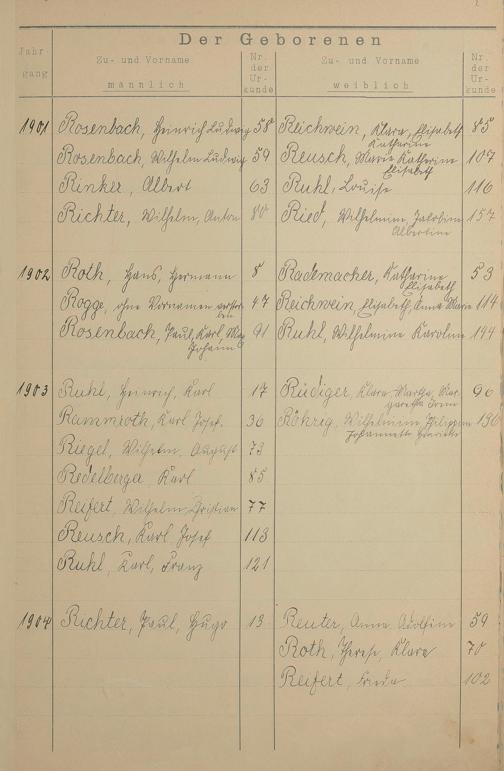 Der Geborenen
Jahr- Zu- und Vorname Nr. Zu- und Vorname Nr.
gang männlich der weiblich der
Ur- Ur-
kunde kunde
1901 Rosenbach, Heinrich Ludwig 58 Reichwein, Klara, Elisabeth 85
Katharine
Rosenbach, Wilhelm Ludwig 59 Reusch, Marie Katharine 107
Elisabeth
Rinker, Albert 63 Ruhl, Louise 116
Richter, Wilhelm, Anton 80 Ried, Wilhelmine, Jakobine 157
Albertine
1902 Roth, Hans, Hermann 8 Rademacher, Katharine 53
Elisabeth
Rogge, ohne Vornamen verstor- 47 Reichwein, Elisabeth, Anna Marie 114
ben
Rosenbach, Paul, Karl, Max 91 Ruhl, Wilhelmine Karoline 144
Johann
1903 Ruhl, Heinrich, Karl 17 Rüdiger, Klara Martha, Mar- 96
garethe
Rammroth, Karl Josef. 36 Röhrig, Wilhelmine, Philippine 136
Johannette Henriette
Riegel, Wilhelm, August 73
Redelberger Karl 85
Reifert, Wilhelm, Christian 77
Reusch, Karl Josef 113
Ruhl, Karl, Franz 121
1904 Richter, Paul, Hugo 13 Reuter, Anna Adolfine 59
Roth, Therese, Klara 70
Reifert, Frieda 102